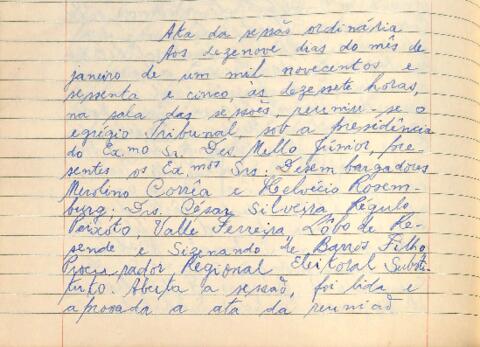 Ata da sessão ordinária
Aos dezenove dias do mês de
janeiro de um mil novecentos e
sessenta e cinco, as dezessete horas,
na sala das sessões, reuniu-se o
egrégio Tribunal, sob a presidência
do Ex.mo Sr. Des. Mello Júnior, pre-
sentes os Ex.mos Srs. Desembargadores
Merolino Corrêa e Helvécio Rosem-
burg. Drs. César Silveira, Régulo
Peixôto, Valle Ferreira, Lôbo de Re-
sende e Sizenando de Barros Filho
Procurador Regional Eleitoral Substi-
tuto. Aberta a sessão, foi lida e
aprovada a ata da reunião